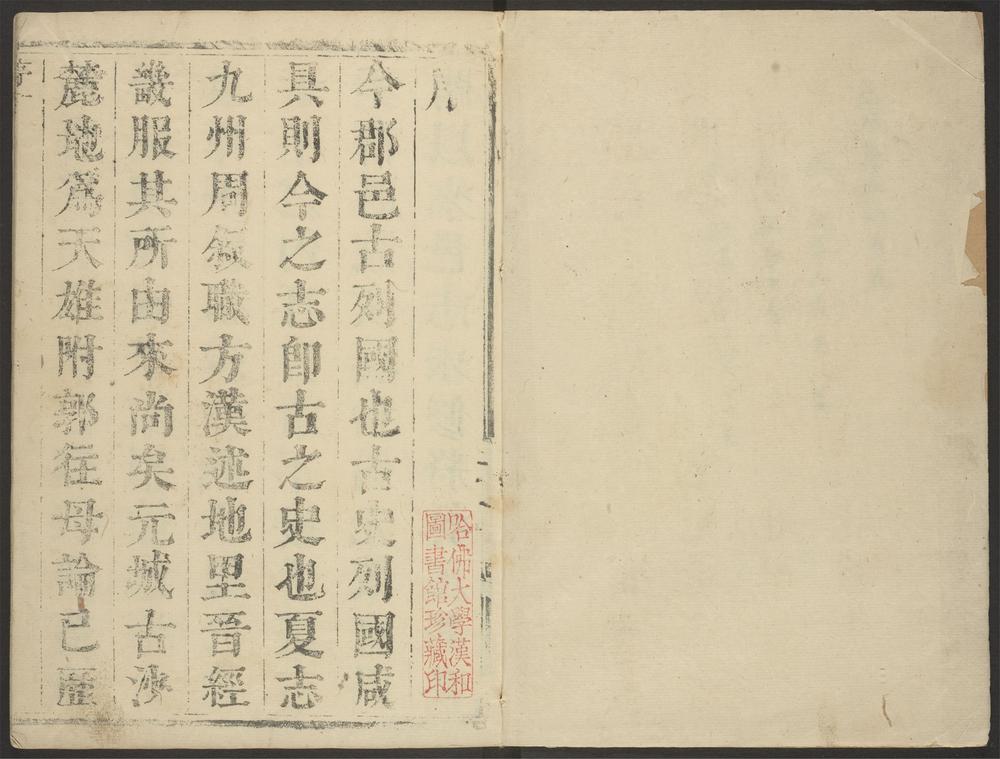 序
今郡邑古列國也古史列國咸
具則今之志即古之史也夏志
九州周叙職方漢述地里晉經
畿服其所由來尚矣元城古沙
麓地為天雄附郭徃毋論已歷
哈佛大學漢和
圖書館珍藏印